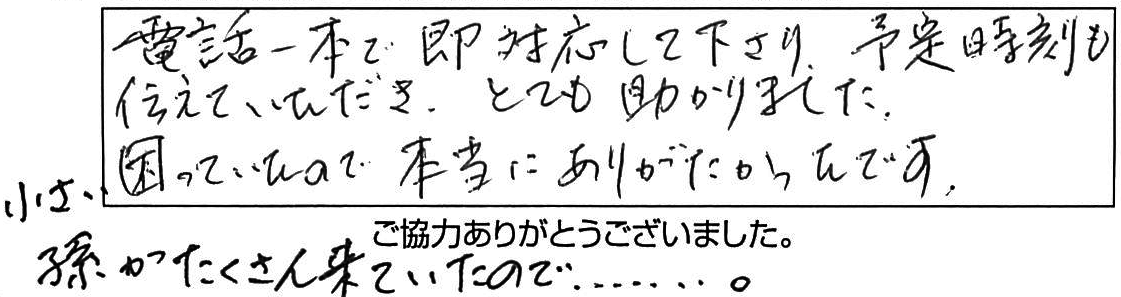 電話一本で即対応して下さり、予定時刻も
伝えていただき、とても助かりました。
困っていたので本当にありがたかったです。
ご協力ありがとうございました。
小さい
孫がたくさん来ていたので.......。